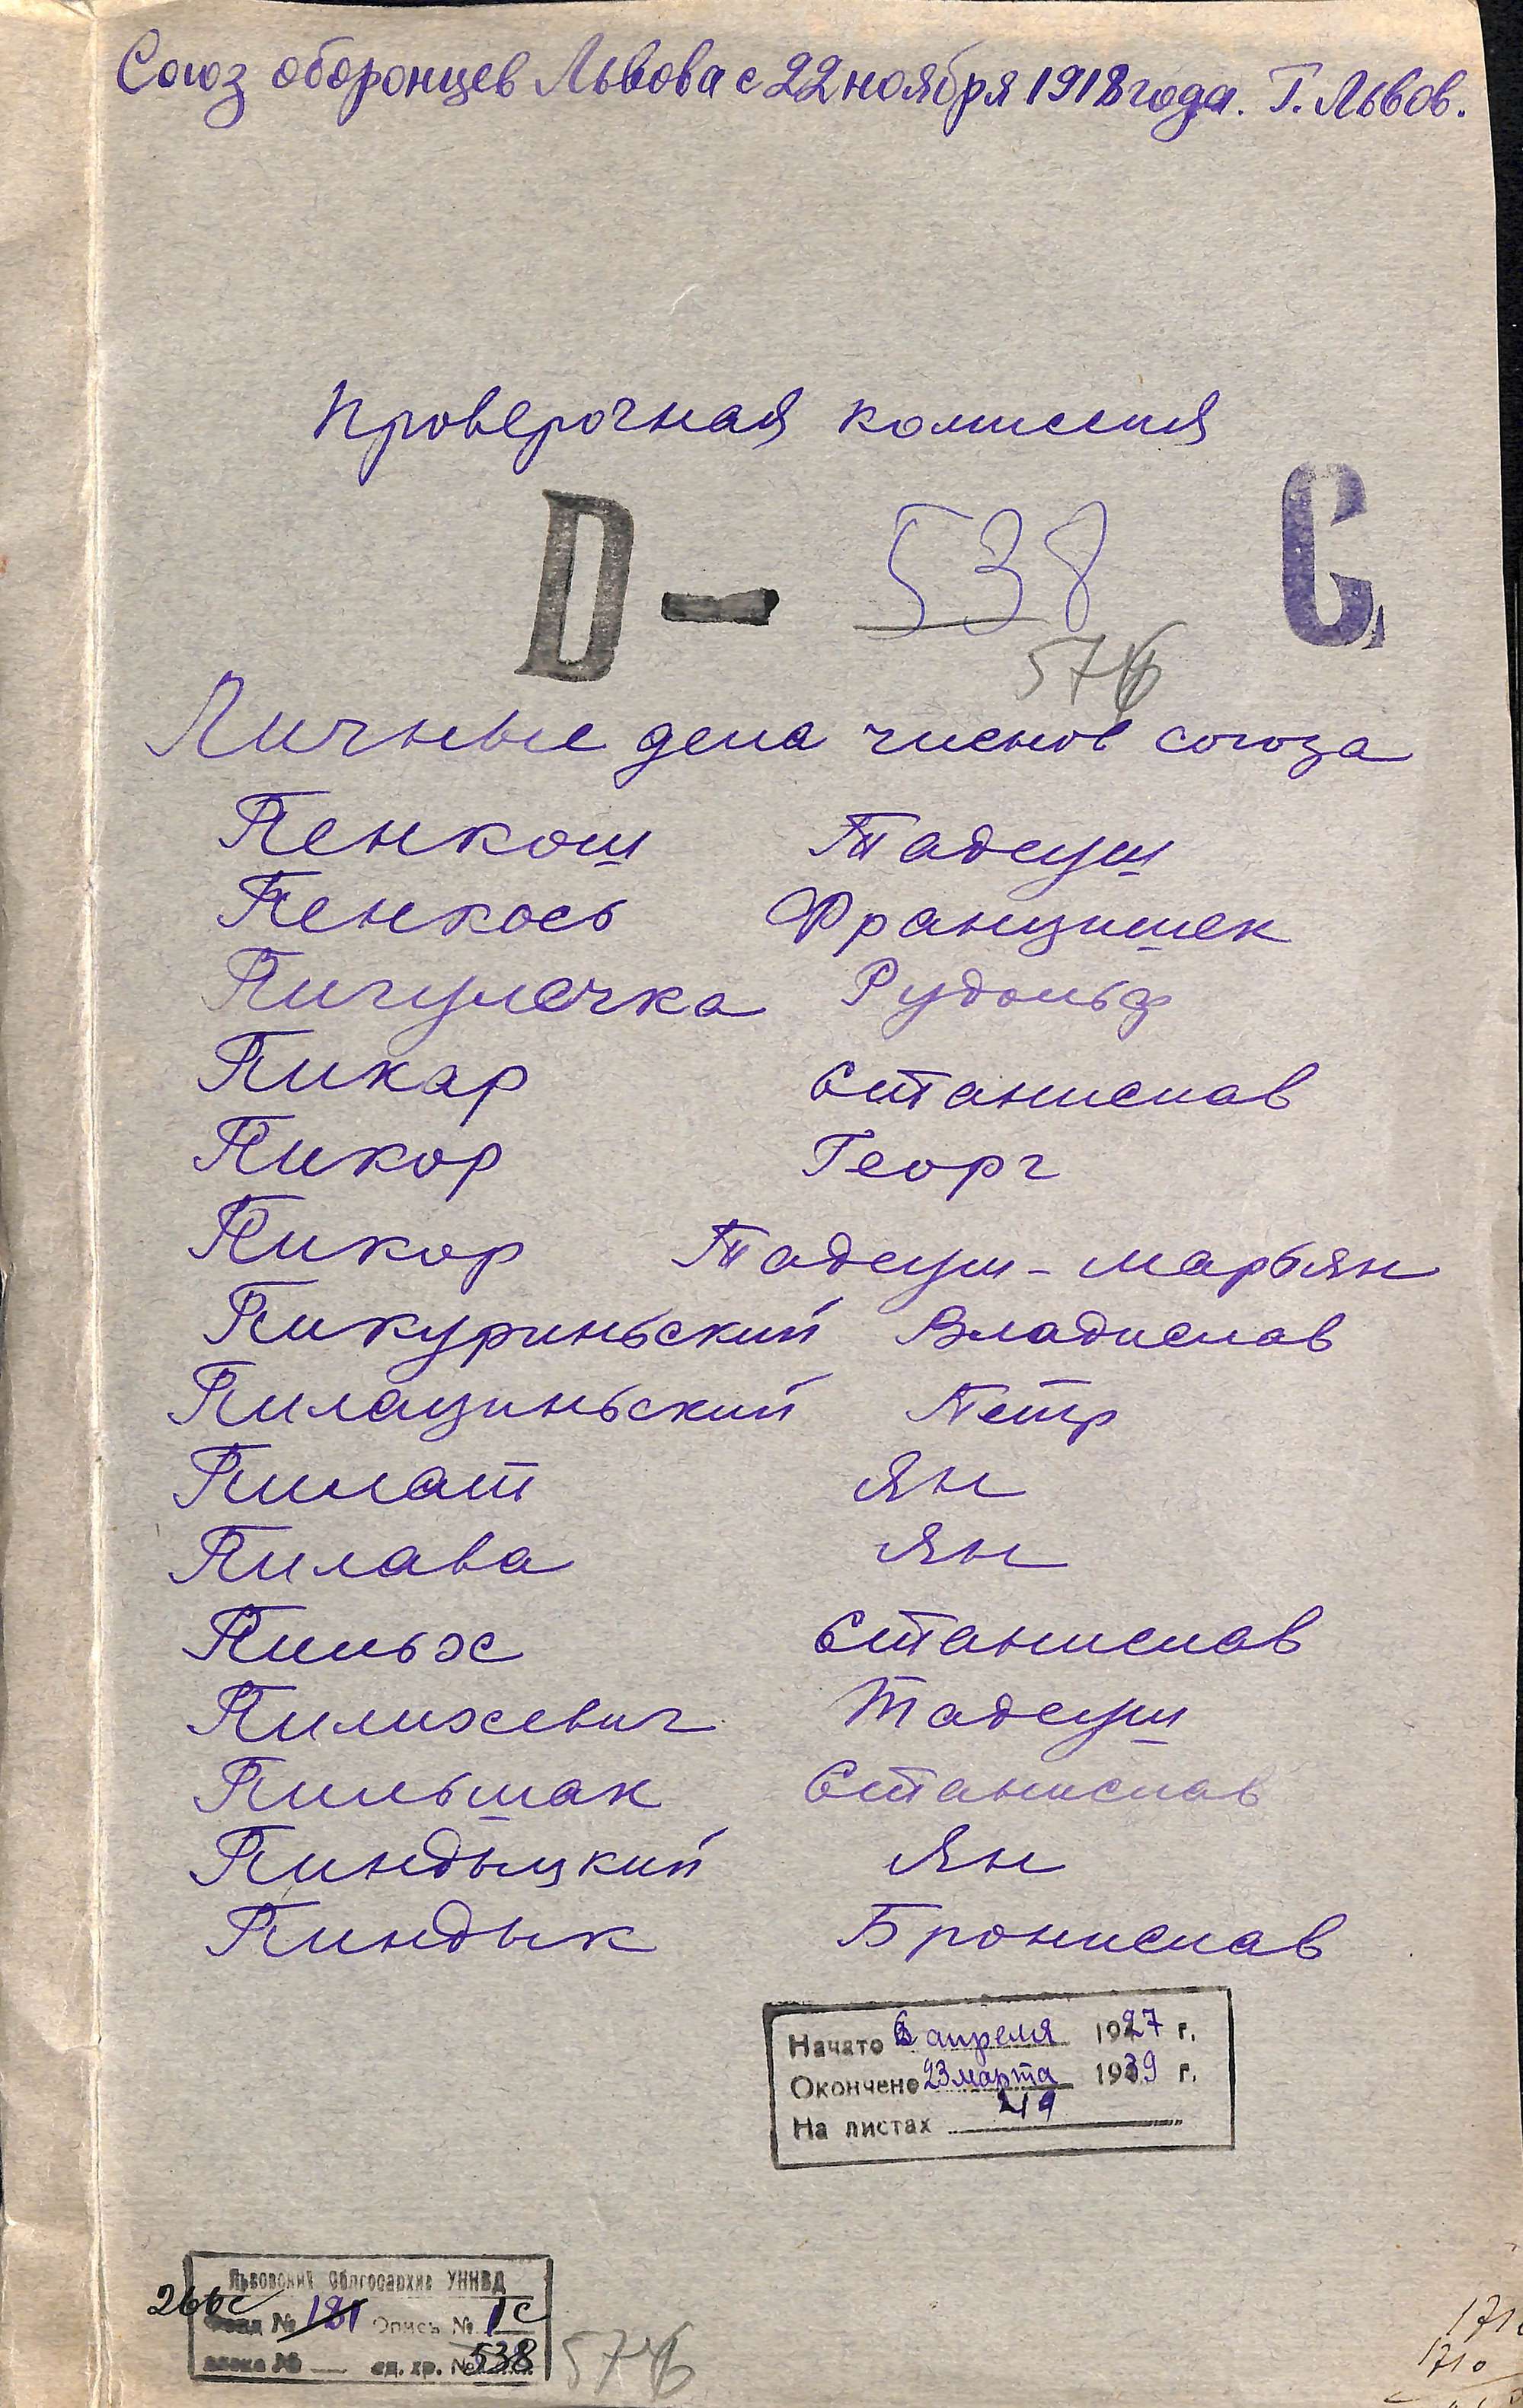 Союз оборонцев Львова с 22 ноября 1918 года. Г. Львов.
Проверочная комиссия
D — 538 С
576
Личные дела членов союза
Пенкош Тадеуш
Пенкось Францишек
Пигулечка Рудольф
Пикар Станислав
Пикор Георг
Пикор Тадеуш - Марьян
Пикуриньский Владислав
Пилациньский Петр
Пилат Ян
Пилава Ян
Пильх Станислав
Пилихевич Тадеуш
Пильшак Станислав
Пиндыцкий Ян
Пиндык Бронислав
Начато 6 апреля 1927 г.
Окончено 23 марта 1939 г.
На листах
Львовский Облгосархив УНКВД
266с Фонд № 181 Опись № 1с
ед. хр. № 538 576